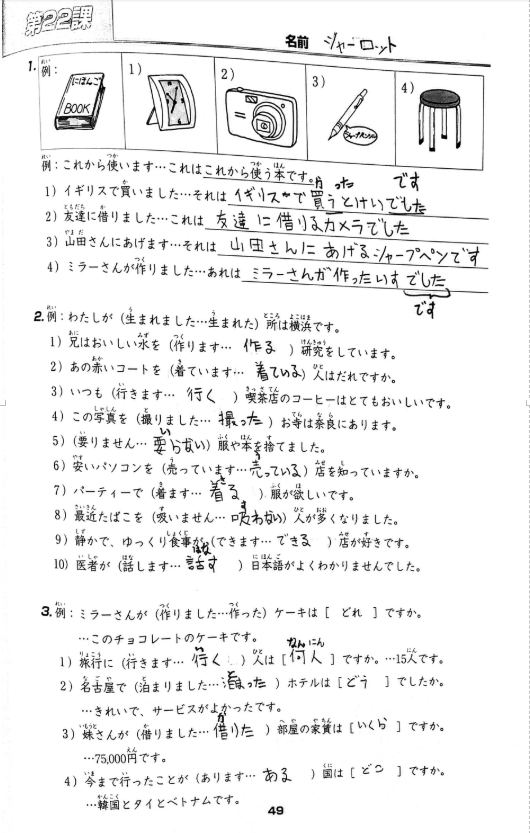 第22課
名前 シャーロット
1. 例： 1) 2) 3) 4)
にほんご
BOOK
シャープペンシル
例：これから使います…これはこれから使う本です。
1) イギリスで買いました…それは イギリスで買うとけいでした
った です
2) 友達に借りました…これは 友達に借りるカメラでした
3) 山田さんにあげます…それは 山田さんにあげるシャープペンです
4) ミラーさんが作りました…あれは ミラーさんが作ったいすでした
です
2. 例：わたしが（生まれました…生まれた）所は横浜です。
1) 兄はおいしい水を（作ります… 作る ）研究をしています。
2) あの赤いコートを（着ています… 着ている）人はだれですか。
3) いつも（行きます… 行く ）喫茶店のコーヒーはとてもおいしいです。
4) この写真を（撮りました… 撮った ）お寺は奈良にあります。
5)（要りません… 要らない）服や本を捨てました。
6) 安いパソコンを（売っています…売っている）店を知っていますか。
7) パーティーで（着ます… 着る ）服が欲しいです。
8) 最近たばこを（吸いません… 吸わない）人が多くなりました。
9) 静かで、ゆっくり食事が（できます… できる ）店が好きです。
10) 医者が（話します… 話す ）日本語がよくわかりませんでした。
3. 例：ミラーさんが（作りました…作った）ケーキは［ どれ ］ですか。
…このチョコレートのケーキです。
1) 旅行に（行きます… 行く ）人は［ 何人 ］ですか。…15人です。
2) 名古屋で（泊まりました…泊まった ）ホテルは［ どう ］でしたか。
…きれいで、サービスがよかったです。
3) 妹さんが（借りました… 借りた ）部屋の家賃は［ いくら ］ですか。
…75,000円です。
4) 今まで行ったことが（あります… ある ）国は［ どこ ］ですか。
…韓国とタイとベトナムです。
49